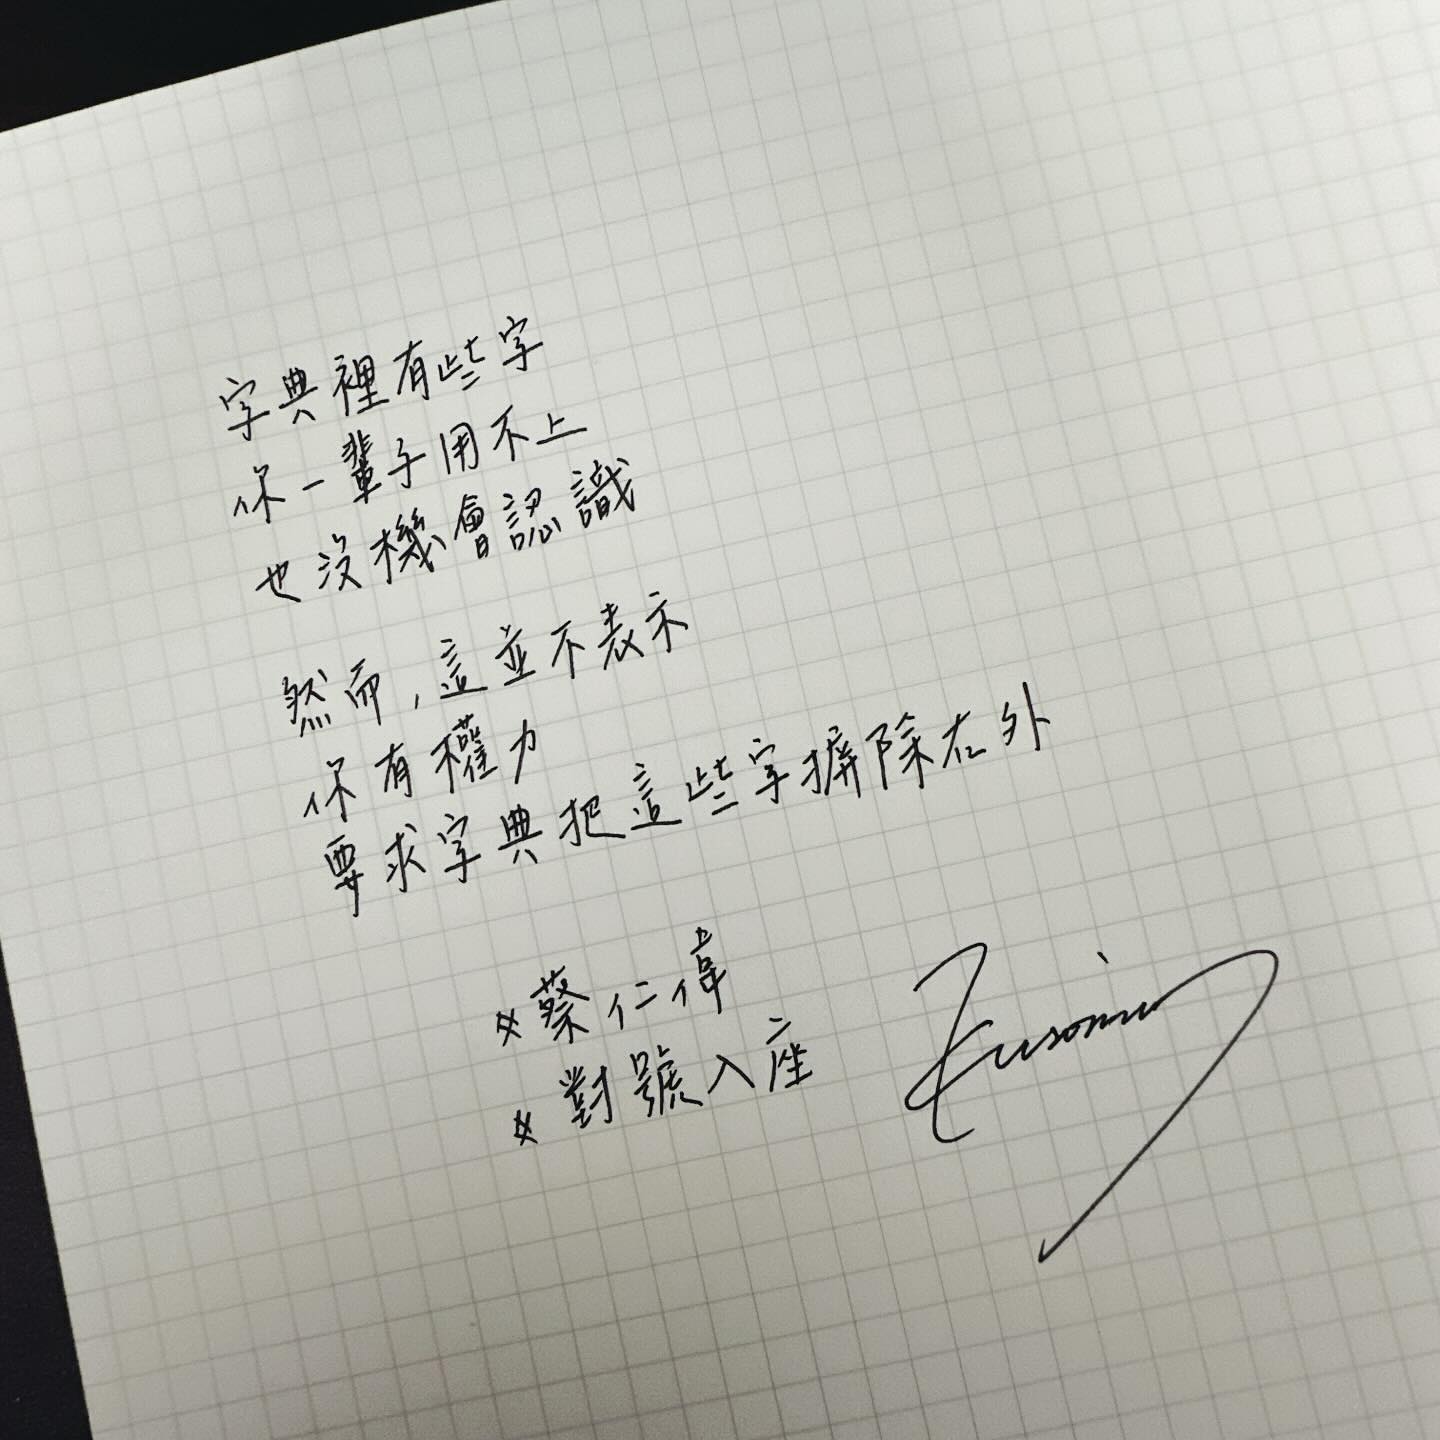 字典裡有些字
你一輩子用不上
也沒機會認識
然而，這並不表示
你有權力
要求字典把這些字摒除在外
#蔡仁偉
#對號入座